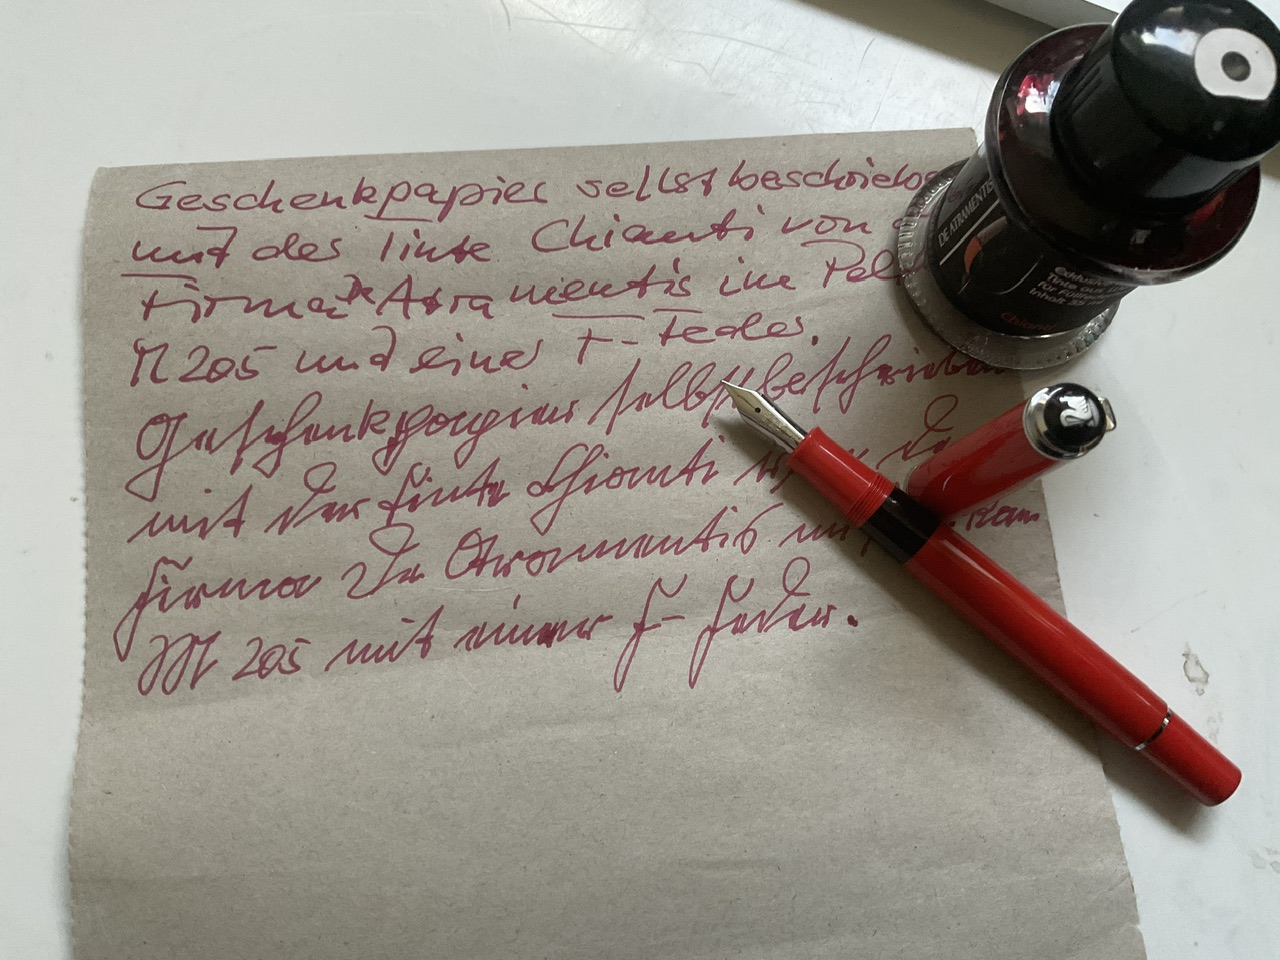 Geschenkpapier selbst beschriebe
mit der Tinte Chianti von
Firma De Atramentis im Pel
M 205 und einer F-Feder.
Geschenkpapier selbst beschrieben
mit der Tinte Chianti von de
Firma De Atramentis im
M 205 mit einer F-Feder.
DE ATRAMENTIS
Tinte
Inhalt 35
Chianti